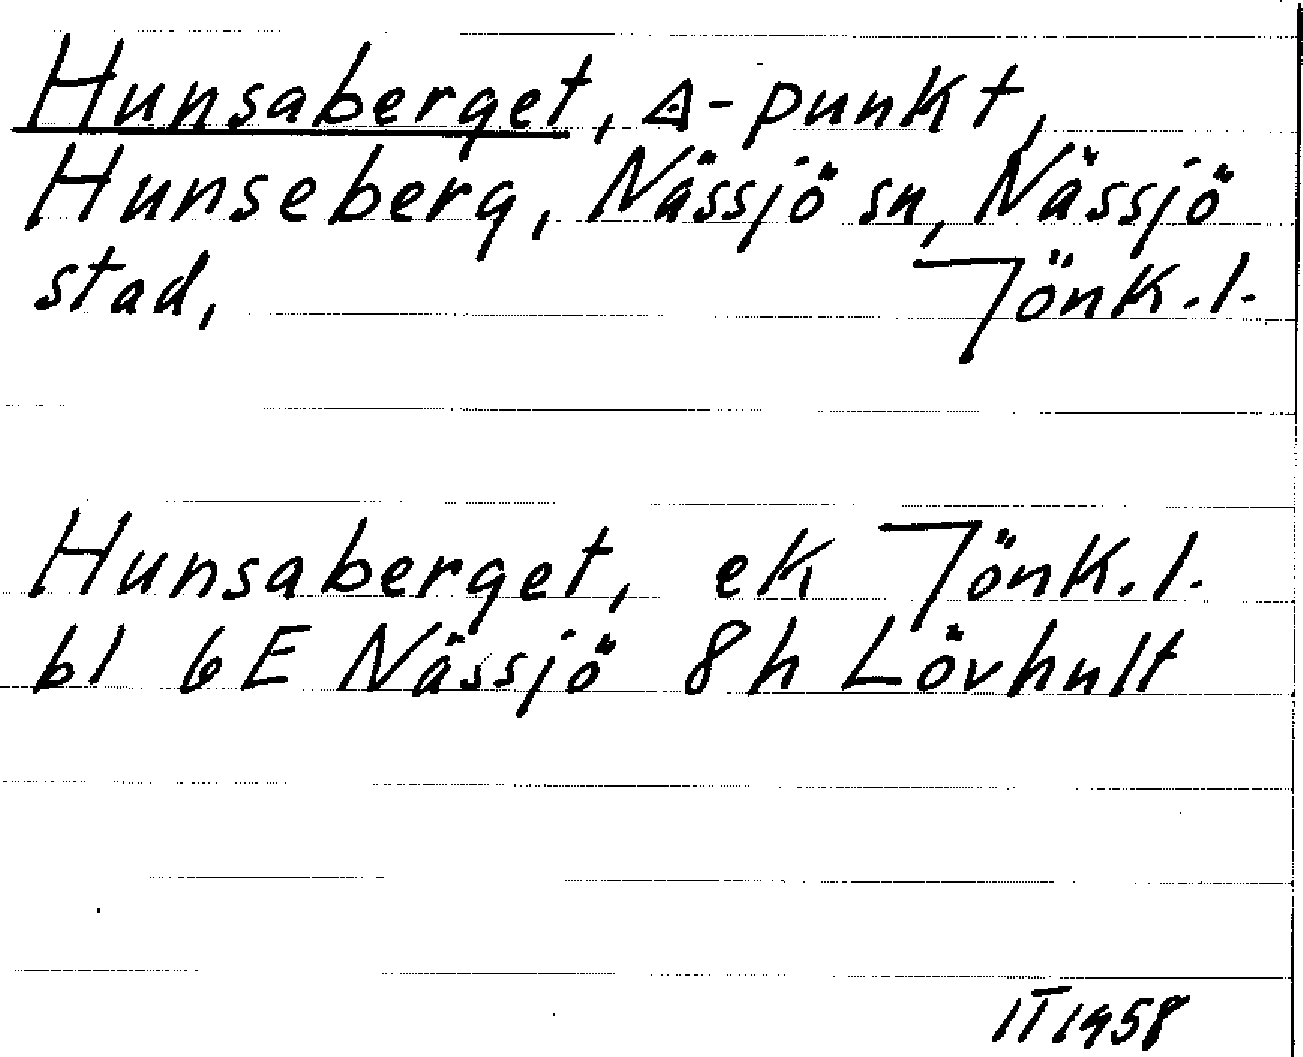 Hunsaberget, △-punkt,
Hunseberg, Nässjö sn, Nässjö
stad, Jönk.l.
Hunsaberget, ek Jönk.l.
bl 6E Nässjö 8h Lövhult
IT 1958